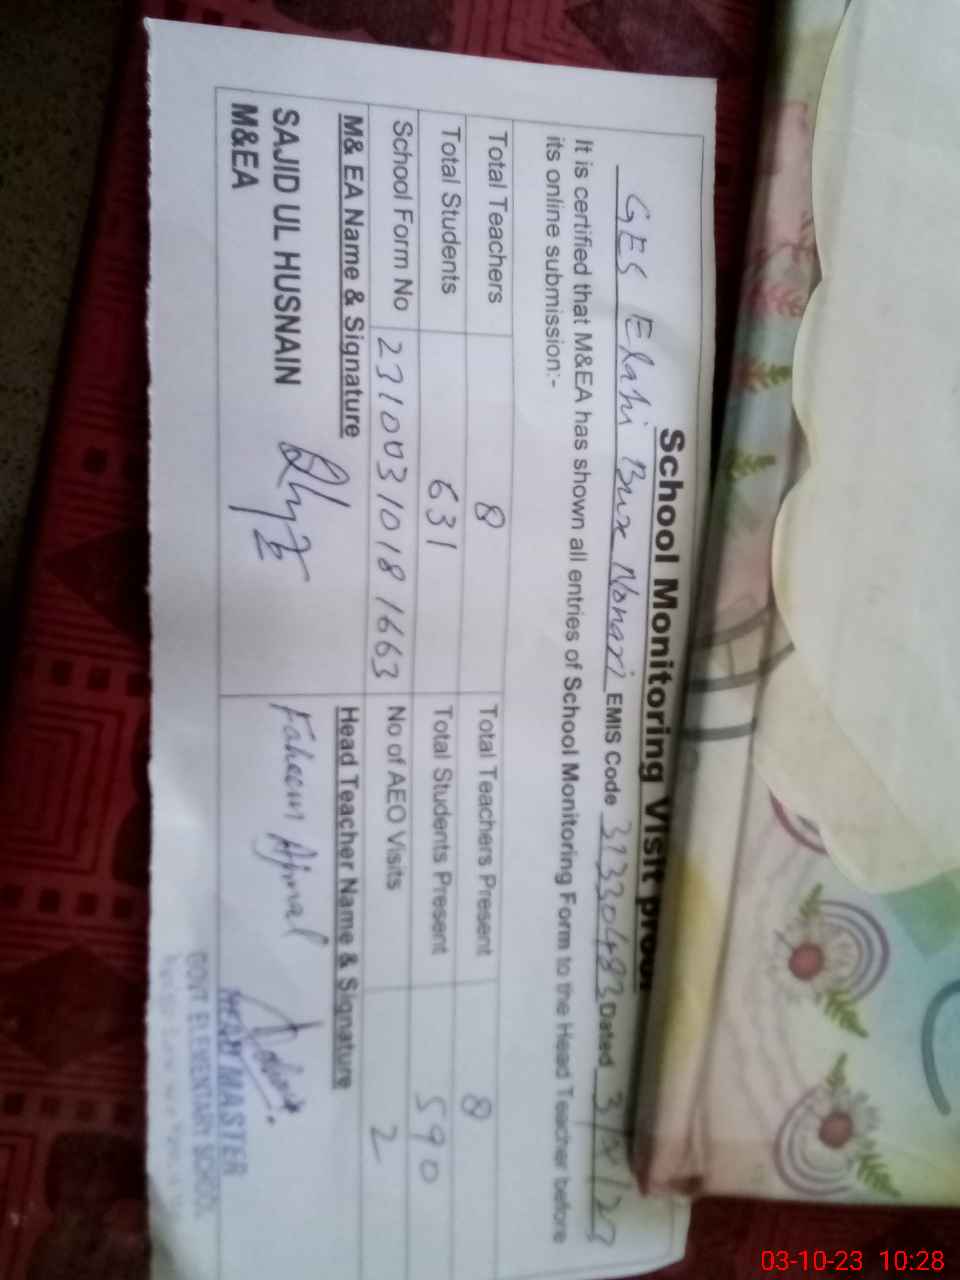 School Monitoring Visit proof
GES Elahi Bux Nonari EMIS Code 31330483 Dated
It is certified that M&EA has shown all entries of School Monitoring Form to the Head Teacher before
its online submission:-
Total Teachers 8 Total Teachers Present 8
Total Students 631 Total Students Present 590
School Form No 2310031018 1663 No of AEO Visits 2
M& EA Name & Signature Head Teacher Name & Signature
SAJID UL HUSNAIN Faheem Ajmal
M&EA
HEAD MASTER
GOVT ELEMENTARY SCHOOL
03-10-23 10:28